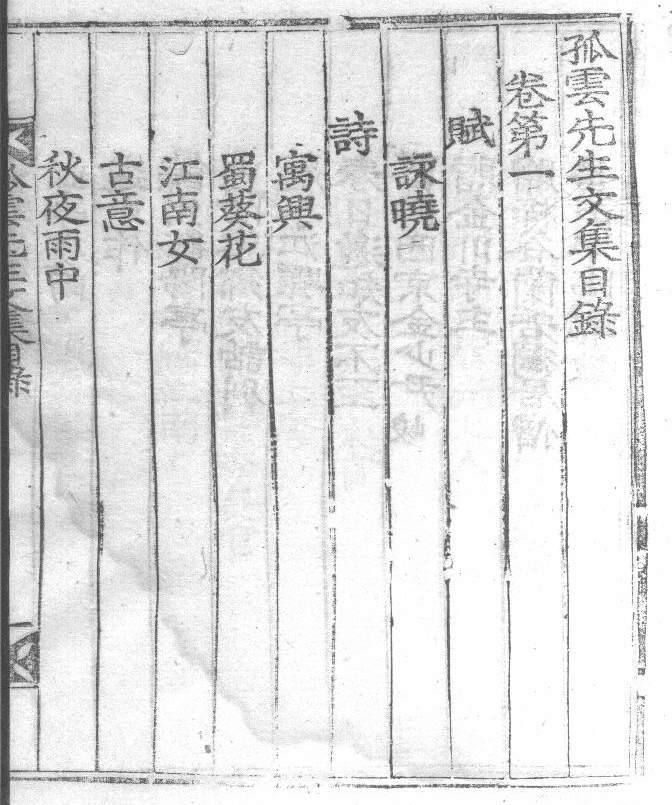 孤雲先生文集目錄
卷第一
賦
詠曉
詩
寓興
蜀葵花
江南女
古意
秋夜雨中
孤雲先生文集目錄